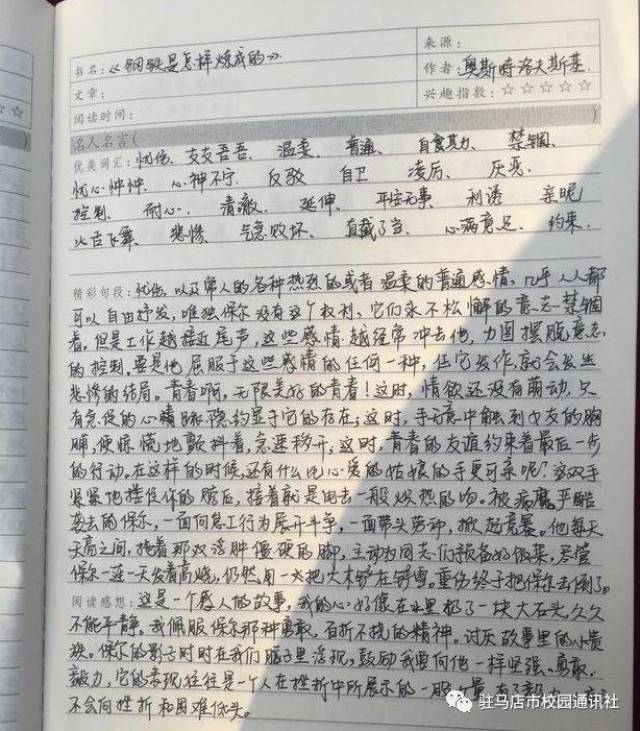 书名：《钢铁是怎样炼成的》
来源：
作者：奥斯特洛夫斯基
文章：
兴趣指数：☆☆☆☆☆
阅读时间：
名人名言( )
优美词汇：忧伤、支支吾吾、温柔、普通、自食其力、禁锢、
忧心忡忡、心神不宁、反驳、自卫、凌厉、厌恶、
控制、耐心、清澈、延伸、平安无事、利诱、亲昵
火舌飞舞、悲惨、气急败坏、直截了当、心满意足、约束、
精彩句段：忧伤、以及常人的各种热烈的或者温柔的普通感情、几乎人人都
可以自由抒发，唯独保尔没有这个权利、它们永不松懈的意志禁锢
着。但是工作越接近尾声，这些感情越经常冲击他，力图摆脱意志
的控制，要是他屈服于这些感情的任何一种，任它发作，就会发生
悲惨的结局。青春啊，无限美好的青春！这时，情欲还没有萌动，只
有急促的心跳隐约显于它的存在；这时，手无意中触到女友的胸
脯，便惊慌地颤抖着，急速移开；这时，青春的友谊约束着最后一步
的行动，在这样的时候，还有什么比心爱的姑娘的手更可亲呢？这双手
紧紧地搂住你的脖后，接着就是电击一般炽热的吻。被病魔严酷
袭击的保尔，一面向怠工行为展开斗争，一面带头劳动，掀起竞赛。他每天
天亮之间，拖着那双浮肿僵硬的脚，主动为同志们预备好做菜，尽管
保尔一连一天发着高烧，仍然用一大把大木铲在铲雪。重伤终于把保尔击倒了。
阅读感想：这是一个感人的故事，我的心好像在水里投了一块大石头，久久
不能平静。我佩服保尔那种勇敢，百折不挠的精神。讨厌故事里的小贵
族。保尔的影子时时在我们脑子里浮现，鼓励我要向他一样坚强、勇敢。
毅力，它的表现往往是一个人在挫折中所展示的一股力量，有了毅力
不会向挫折和困难低头。
驻马店市校园通讯社